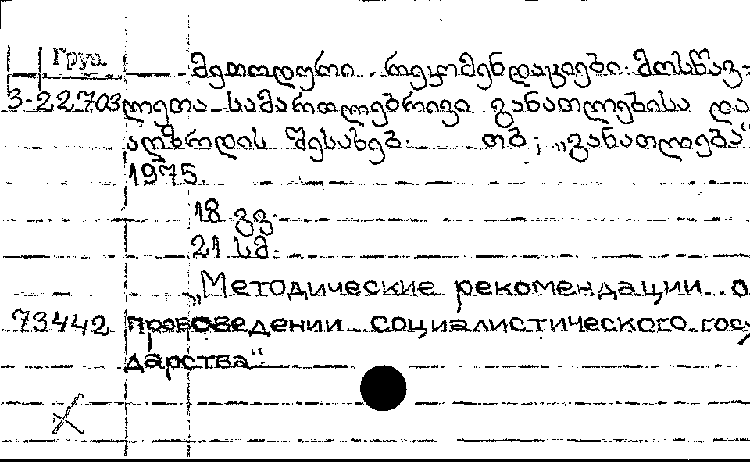 Груз.
მეთოდური რეკომენდაციები მოსწავ-
3-22.703 ლეთა სამართლებრივი განათლებისა და
აღზრდის შესახებ. თბ; „განათლება“
1975.
18 გვ.
21 სმ.
„Методические рекомендации о
73442 проведении социалистического госу
дарства“